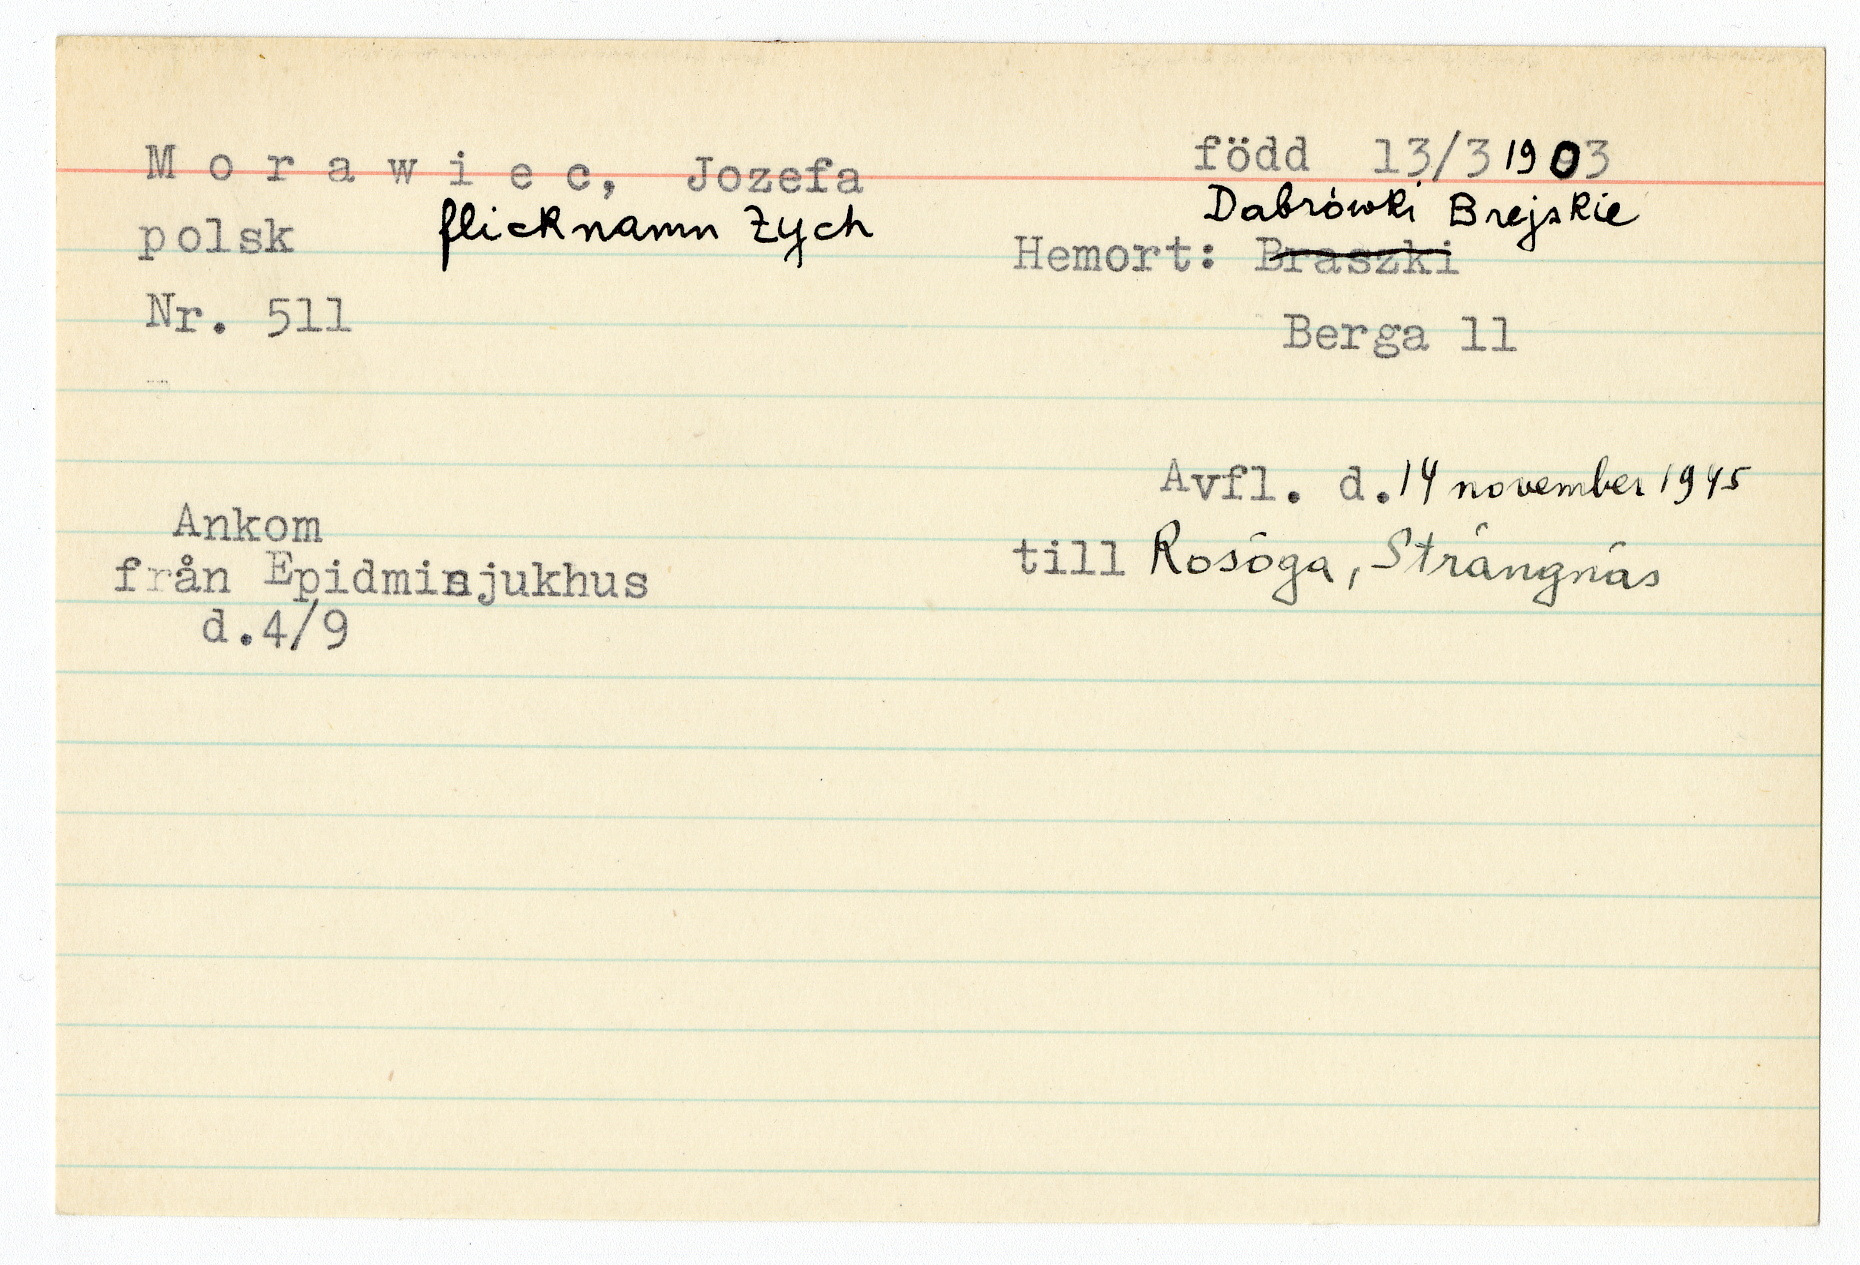 Morawiec, Jozefa född 13/3 1903
Dabrówki Brejskie
polsk flicknamn Zych
Hemort: Braszki
Nr. 511
Berga 11
Avfl. d. 14 november 1945
Ankom
till Rosöga, Strängnäs
från Epidmisjukhus
d.4/9